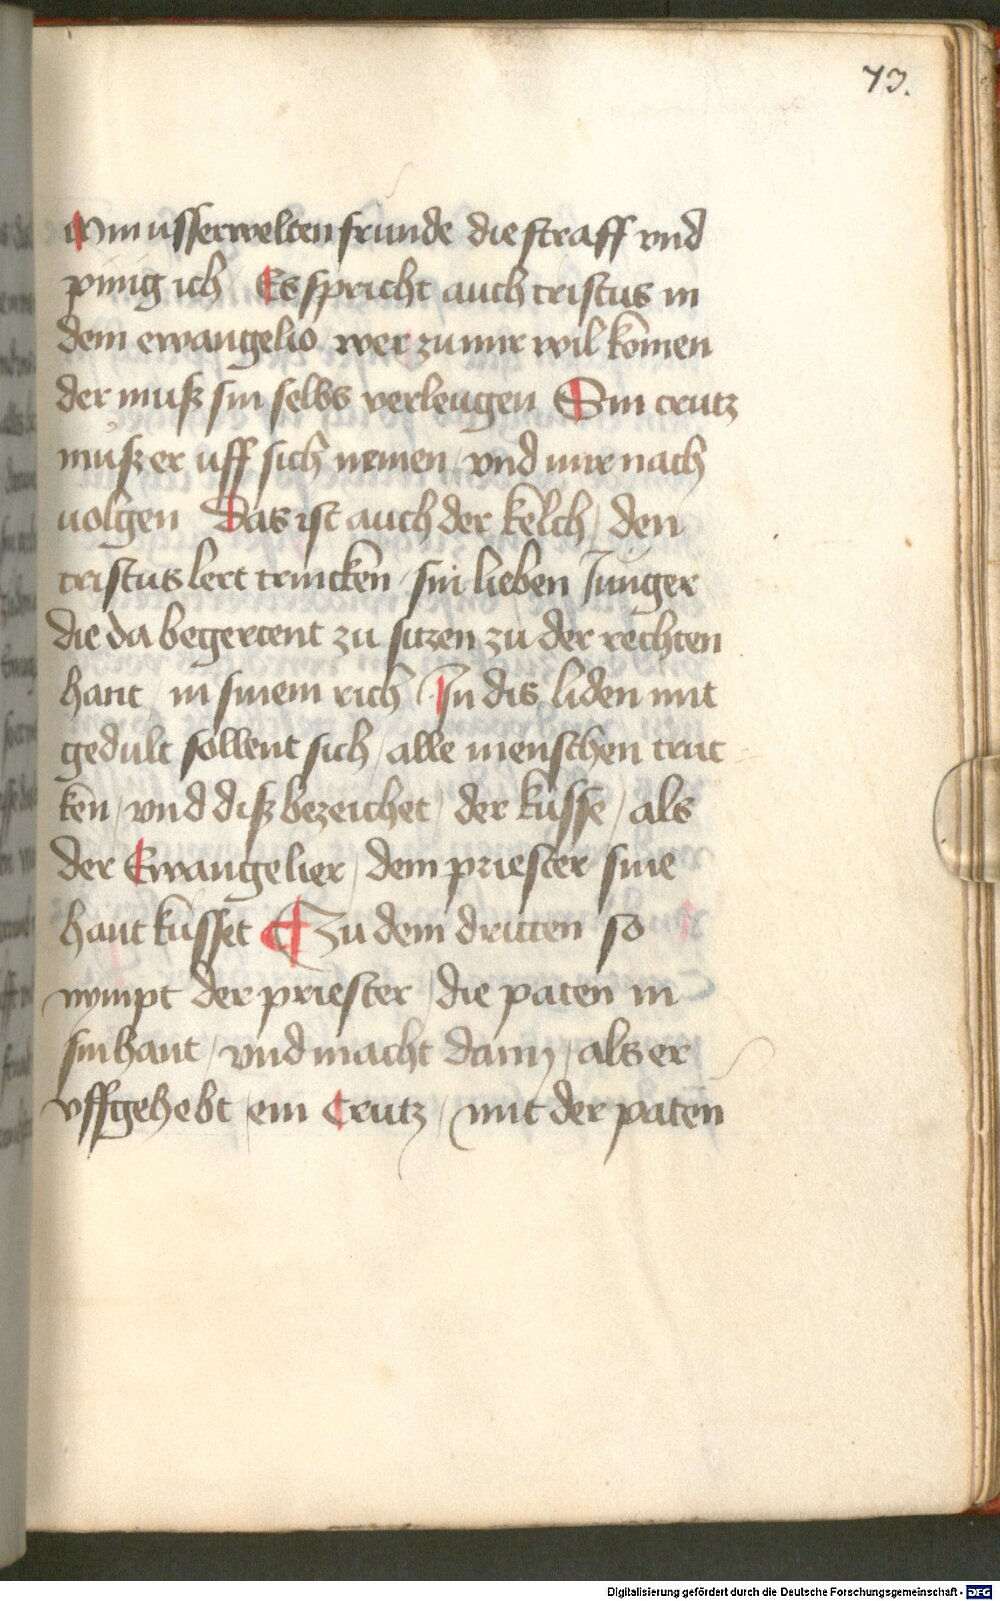 73.
Min usserwelten frunde die straff vnd
pinig ich Es spricht auch cristus in
dem ewangelio wer zu mir wil komen
der muß sin selbs verleugen Sin crutz
muß er uff sich nemen / vnd mir nach
uolgen Das ist auch der kelch / den
cristus lert trincken / sin lieben Junger
die da begertent zu sitzen zu der rechten
hant / in sinem rich / In dis liden mit
gedult sollent sich / alle menschen truc
ken / vnd diß bezeichet / der kusse / als
der Ewangelier / dem priester sine
hant kusset ¶ Zu dem dritten so
nympt der priester / die paten in
sin hant / vnd macht dann / als er
vffgehebt / ein Crutz / mit der paten
Digitalisierung gefördert durch die Deutsche Forschungsgemeinschaft - DFG